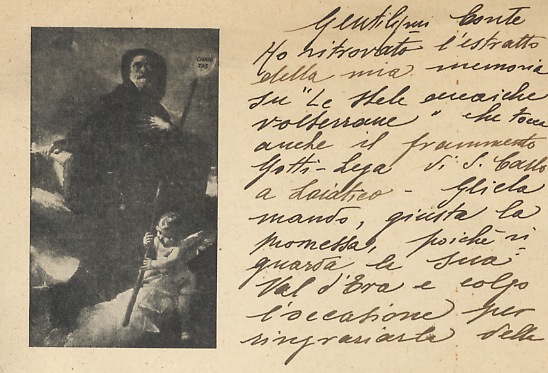 CHARI
TAS
Gentilissimo Conte
Ho ritrovato l'estratto
della mia memoria
su "Le stele arcaiche
volterrane" che tocca
anche il frammento
Gotti-Lega di S. Gallo
a Laiatico - Gliela
mando, giusta la
promessa, poiché ri
guarda la sua
Val d'Era e colgo
l'occasione per
ringraziarla delle